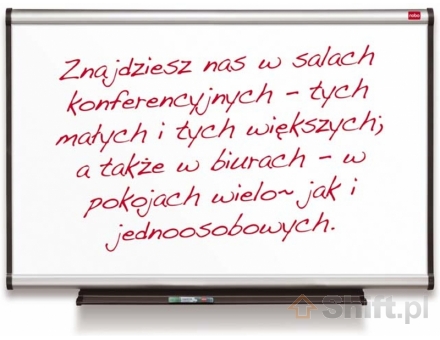 nobo
Znajdziesz nas w salach
konferencyjnych - tych
małych i tych większych;
a także w biurach - w
pokojach wielo~ jak i
jednoosobowych.
Shift.pl